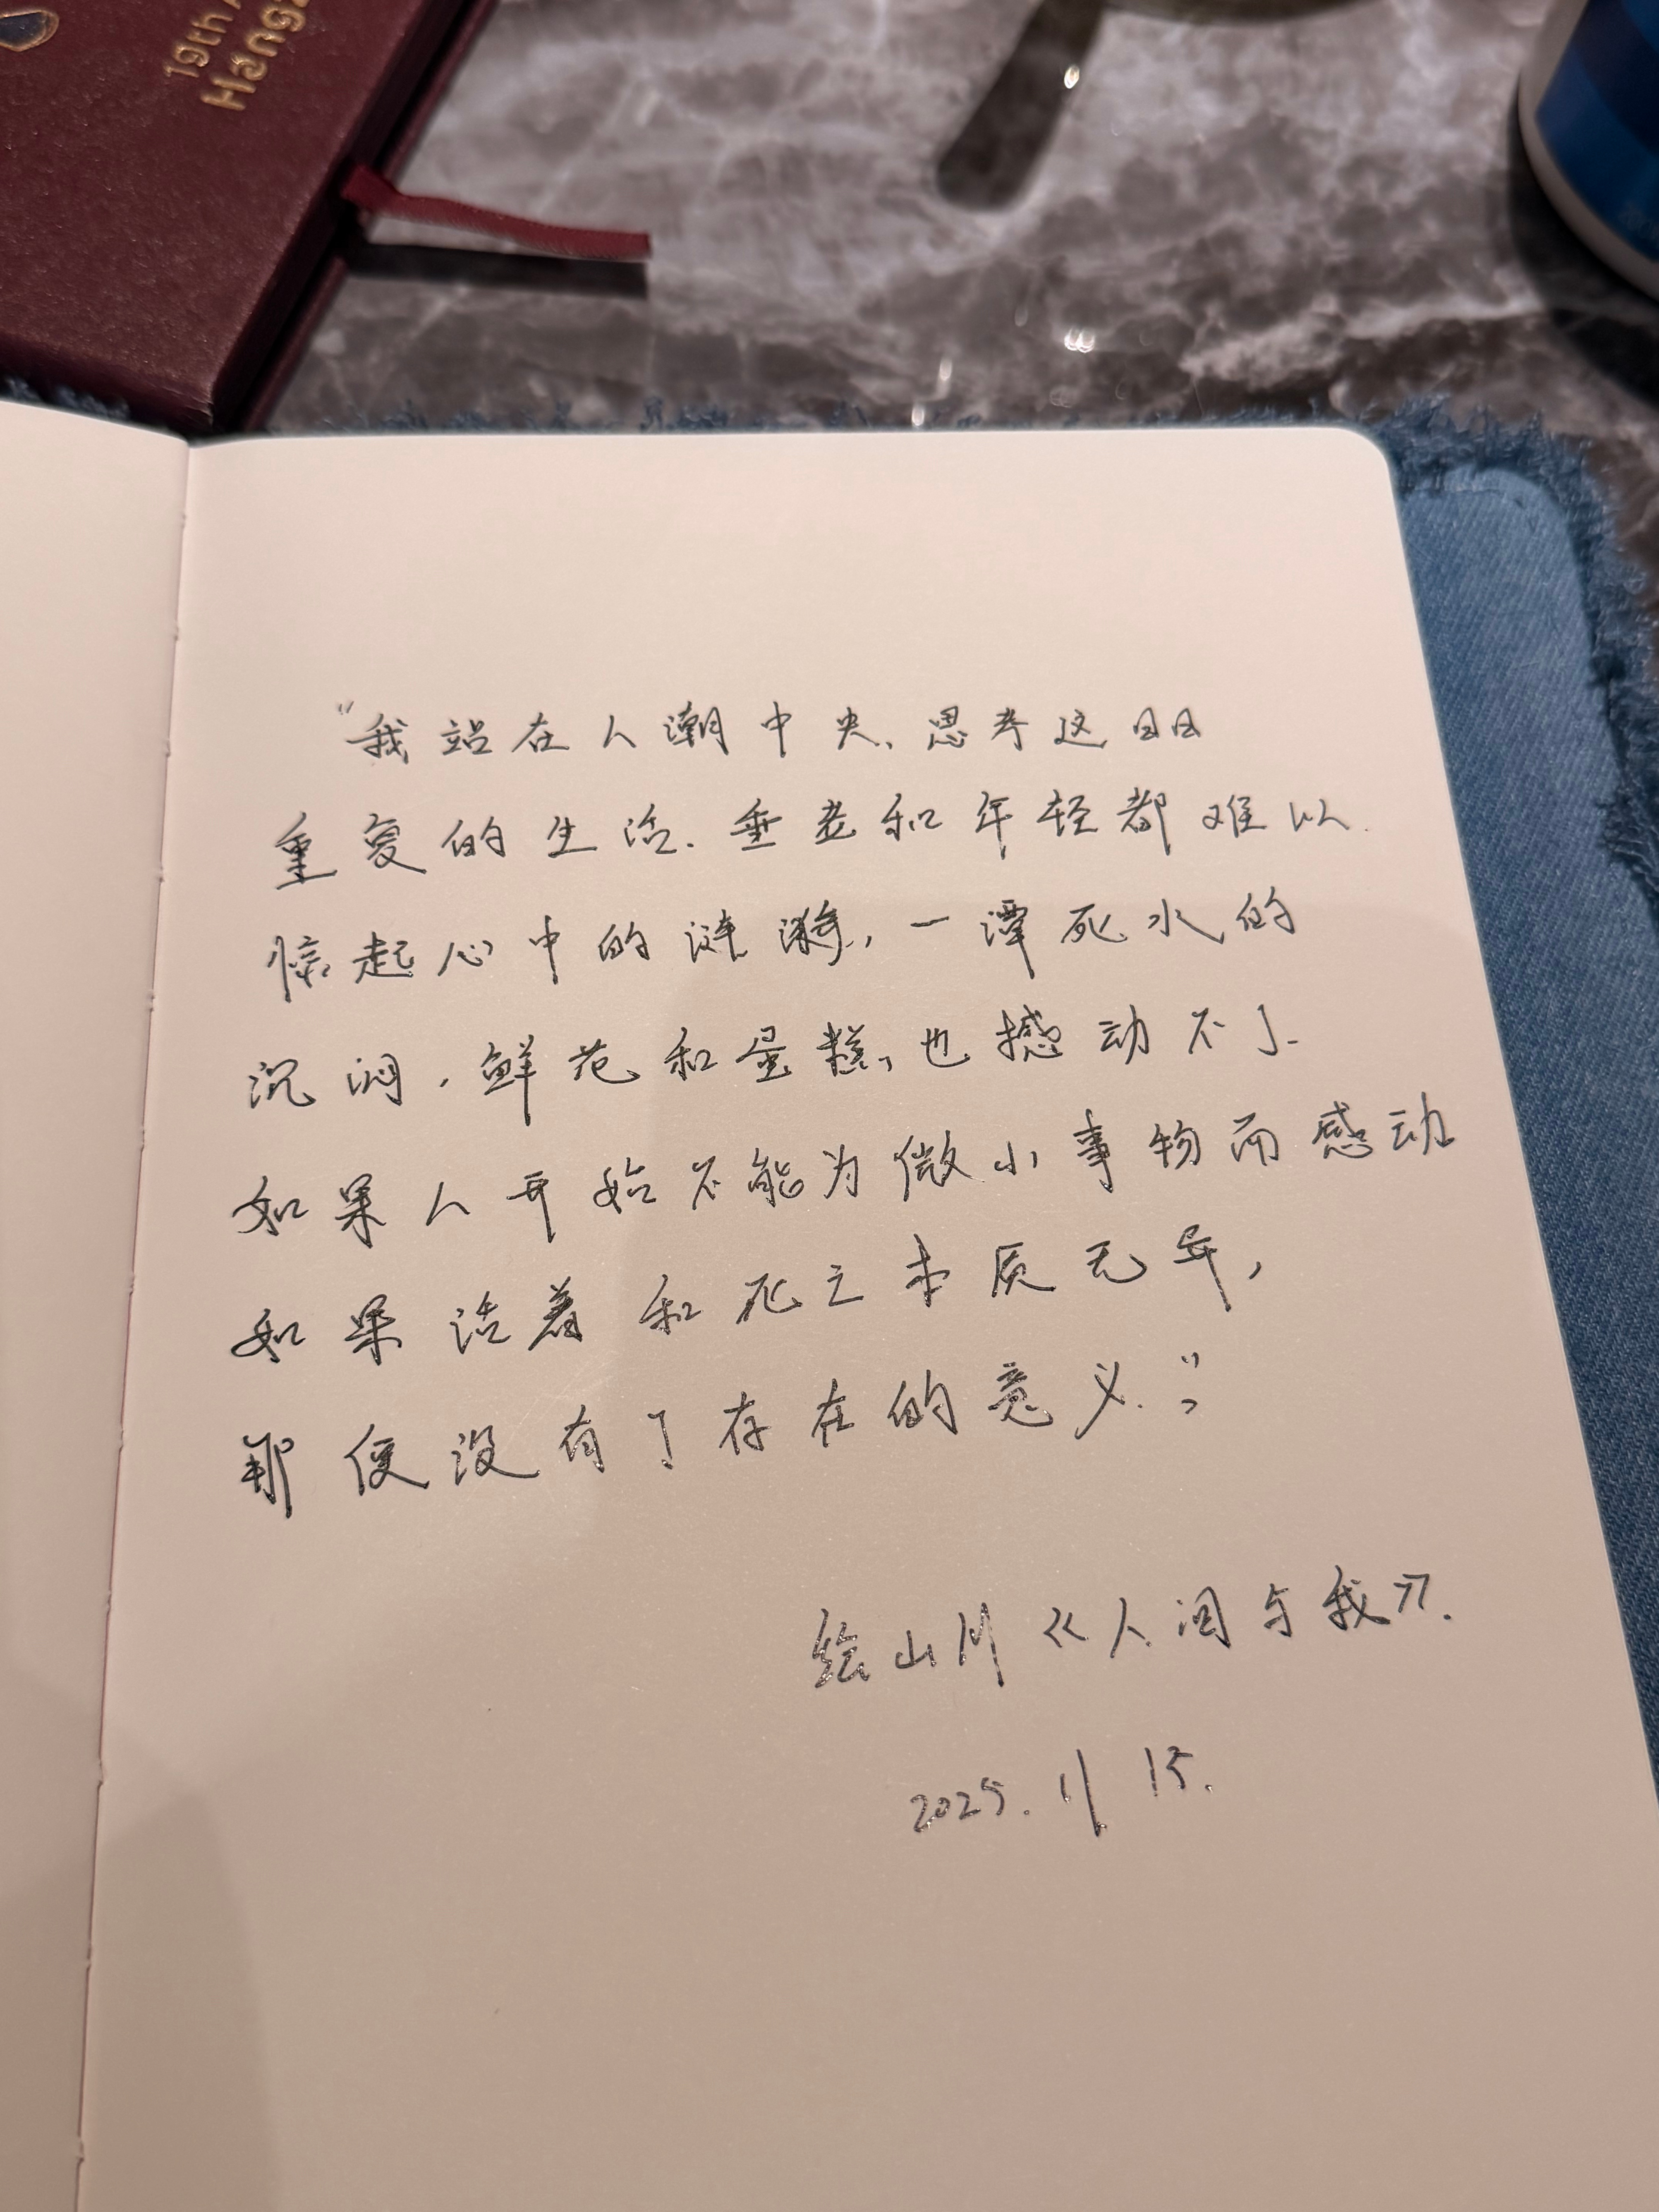 19th A
Hangz
“我站在人潮中央、思考这日日
重复的生活.垂老和年轻都难以
惊起心中的涟漪,一潭死水的
沉闷,鲜花和蛋糕,也撼动不了.
如果人开始不能为微小事物而感动
如果活着和死之本质无异,
那便没有了存在的意义.”;
绘山川《人间与我》.
2025. 11 15.